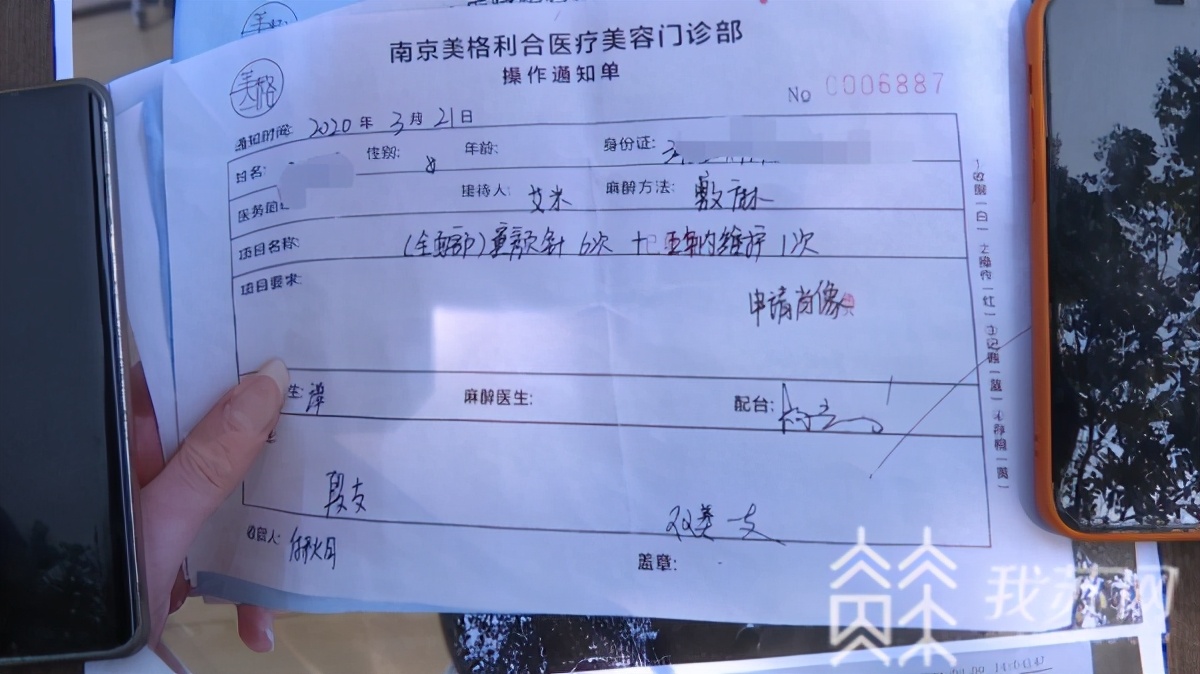 美格
南京美格利合医疗美容门诊部
操作通知单
No 0006887
通知时间: 2020 年 3 月 21 日
姓名: 性别: 女 年龄: 身份证:
接待人: 艾米 麻醉方法: 敷麻
项目名称: (全面部)童颜针 6次 五年内维护 1次
项目要求:
申请肖像
生: 谭 麻醉医生: 配台:
双美一支
收银人:
盖章:
1收银(白) 2操作(红) 3记账(蓝) 4存根(黄)
我苏网